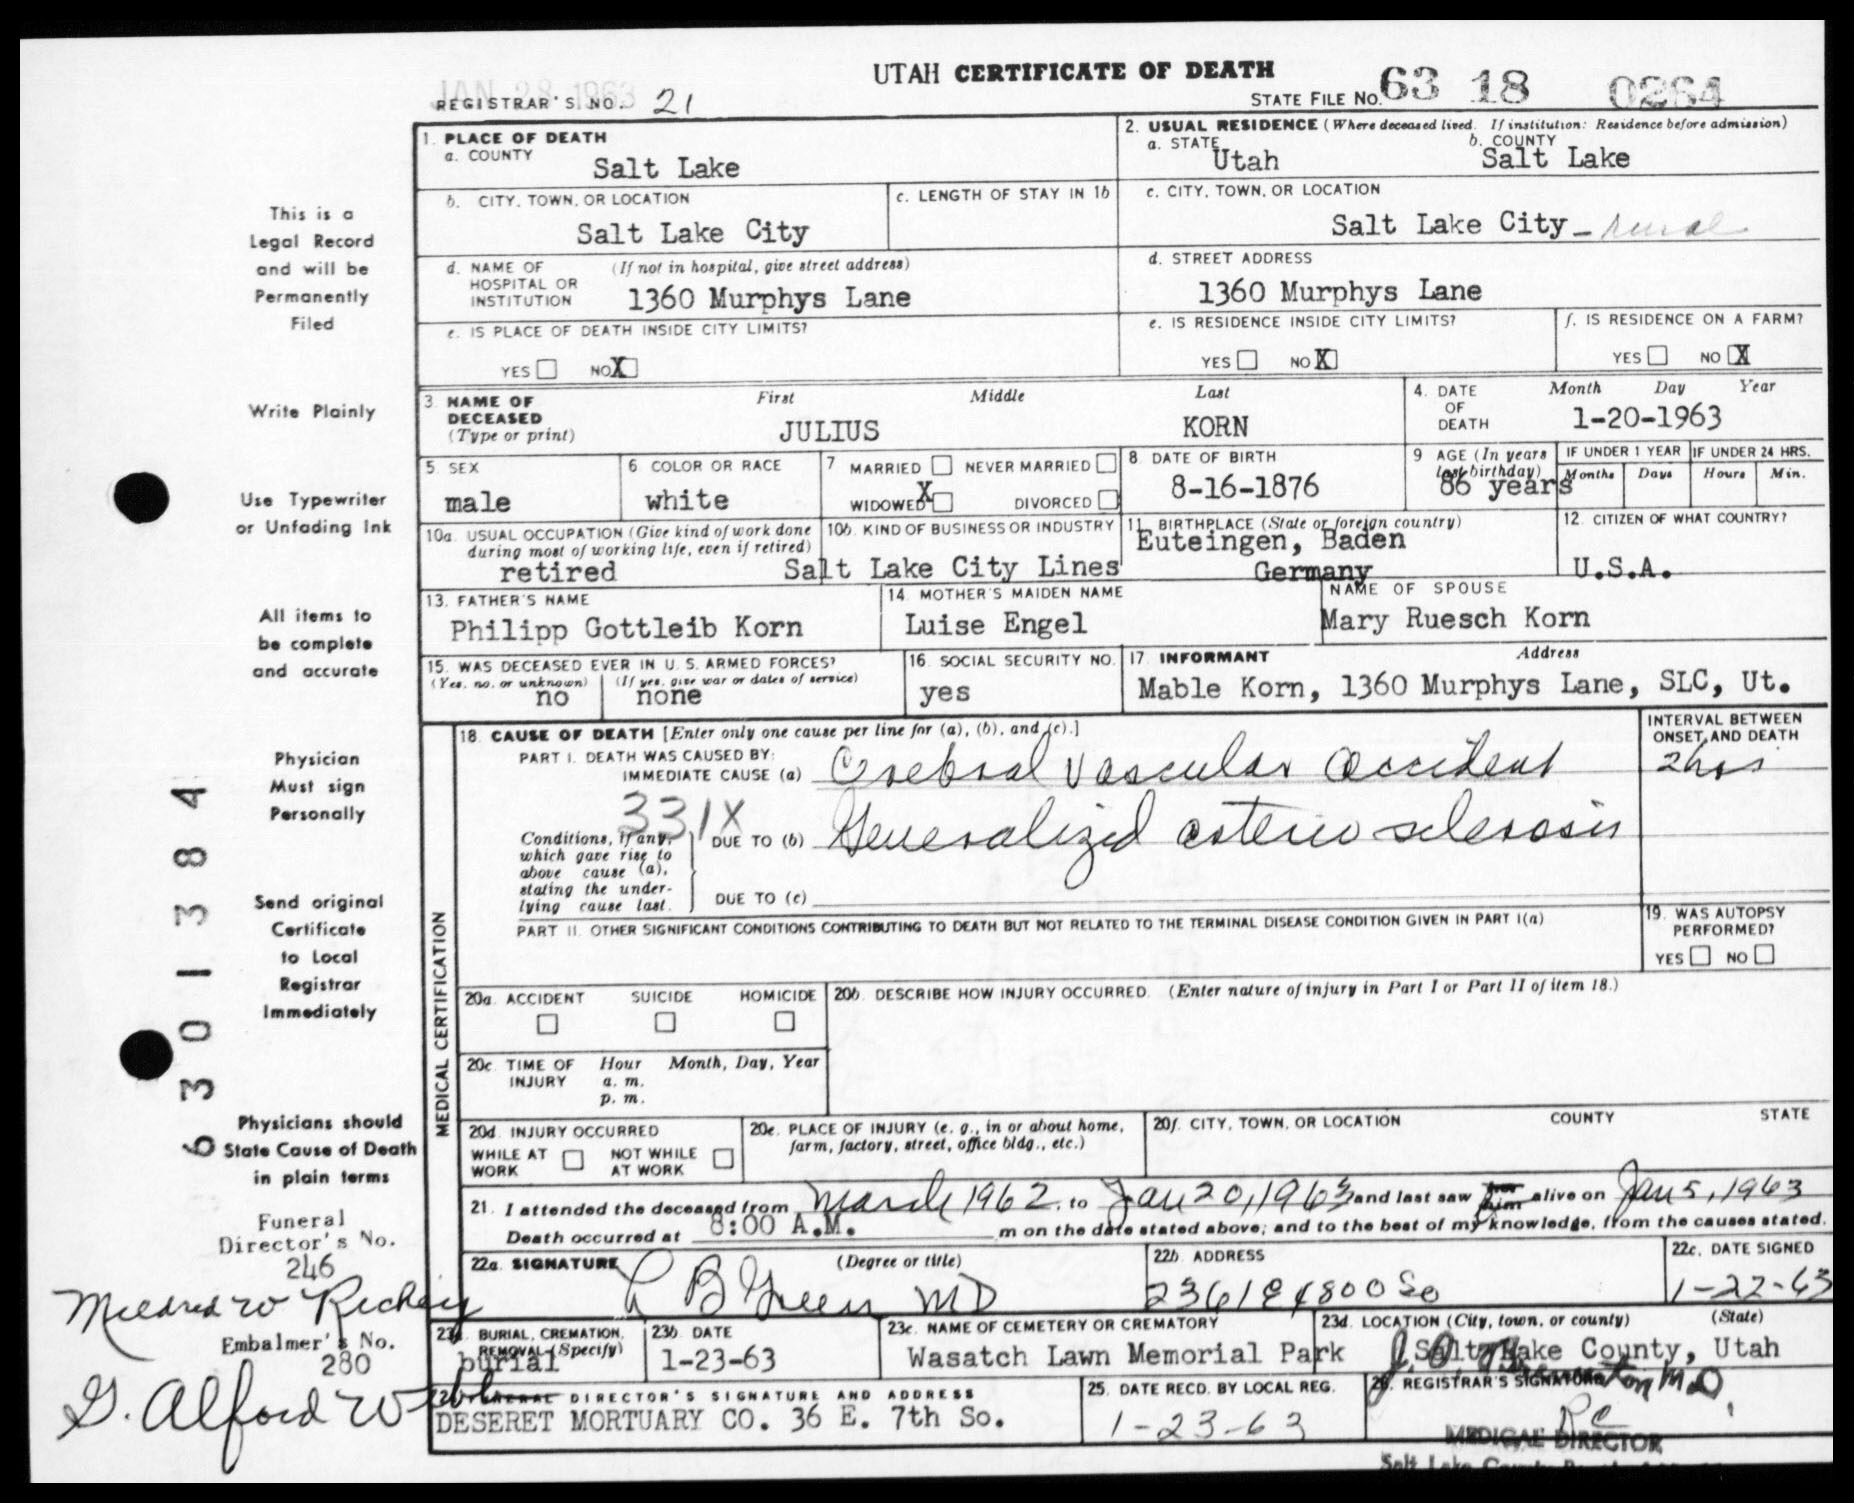 UTAH CERTIFICATE OF DEATH
JAN 28 1963
REGISTRAR'S NO. 21
STATE FILE NO. 63 18 0264
1. PLACE OF DEATH
a. COUNTY
Salt Lake
2. USUAL RESIDENCE (Where deceased lived. If institution: Residence before admission)
a. STATE Utah b. COUNTY Salt Lake
b. CITY, TOWN, OR LOCATION
Salt Lake City
c. LENGTH OF STAY IN 1b
c. CITY, TOWN, OR LOCATION
Salt Lake City - rural
d. NAME OF HOSPITAL OR INSTITUTION (If not in hospital, give street address)
1360 Murphys Lane
d. STREET ADDRESS
1360 Murphys Lane
e. IS PLACE OF DEATH INSIDE CITY LIMITS?
YES NO X
e. IS RESIDENCE INSIDE CITY LIMITS?
YES NO X
f. IS RESIDENCE ON A FARM?
YES NO X
3. NAME OF DECEASED (Type or print)
First Middle Last
JULIUS KORN
4. DATE OF DEATH Month Day Year
1-20-1963
5. SEX
male
6. COLOR OR RACE
white
7 MARRIED NEVER MARRIED
WIDOWED X DIVORCED
8. DATE OF BIRTH
8-16-1876
9 AGE (In years last birthday)
86 years
IF UNDER 1 YEAR IF UNDER 24 HRS.
Months Days Hours Min.
10a. USUAL OCCUPATION (Give kind of work done during most of working life, even if retired)
retired
10b. KIND OF BUSINESS OR INDUSTRY
Salt Lake City Lines
11. BIRTHPLACE (State or foreign country)
Euteingen, Baden
Germany
12. CITIZEN OF WHAT COUNTRY?
U.S.A.
13. FATHER'S NAME
Philipp Gottleib Korn
14. MOTHER'S MAIDEN NAME
Luise Engel
NAME OF SPOUSE
Mary Ruesch Korn
15. WAS DECEASED EVER IN U. S. ARMED FORCES?
(Yes, no, or unknown) (If yes, give war or dates of service)
no none
16. SOCIAL SECURITY NO.
yes
17. INFORMANT Address
Mable Korn, 1360 Murphys Lane, SLC, Ut.
MEDICAL CERTIFICATION
18. CAUSE OF DEATH [Enter only one cause per line for (a), (b), and (c).]
PART I. DEATH WAS CAUSED BY:
IMMEDIATE CAUSE (a) Cerebral Vascular Accident
INTERVAL BETWEEN ONSET AND DEATH
2 hrs
331X
Conditions, if any, which gave rise to above cause (a), stating the underlying cause last.
DUE TO (b) Generalized arterio sclerosis
DUE TO (c)
PART II. OTHER SIGNIFICANT CONDITIONS CONTRIBUTING TO DEATH BUT NOT RELATED TO THE TERMINAL DISEASE CONDITION GIVEN IN PART I(a)
19. WAS AUTOPSY PERFORMED?
YES NO
20a. ACCIDENT SUICIDE HOMICIDE
20b. DESCRIBE HOW INJURY OCCURRED. (Enter nature of injury in Part I or Part II of item 18.)
20c. TIME OF INJURY Hour Month, Day, Year
a. m.
p. m.
20d. INJURY OCCURRED
WHILE AT WORK NOT WHILE AT WORK
20e. PLACE OF INJURY (e. g., in or about home, farm, factory, street, office bldg., etc.)
20f. CITY, TOWN, OR LOCATION COUNTY STATE
21. I attended the deceased from March 1962, to Jan 20, 1963 and last saw her him alive on Jan 5, 1963
Death occurred at 8:00 A.M. m on the date stated above; and to the best of my knowledge, from the causes stated.
22a. SIGNATURE (Degree or title)
L B Green MD
22b. ADDRESS
2361 E 4800 So
22c. DATE SIGNED
1-22-63
23a. BURIAL, CREMATION, REMOVAL (Specify)
burial
23b. DATE
1-23-63
23c. NAME OF CEMETERY OR CREMATORY
Wasatch Lawn Memorial Park
23d. LOCATION (City, town, or county) (State)
Salt Lake County, Utah
24. FUNERAL DIRECTOR'S SIGNATURE AND ADDRESS
DESERET MORTUARY CO. 36 E. 7th So.
25. DATE RECD. BY LOCAL REG.
1-23-63
26. REGISTRAR'S SIGNATURE
M.D.
MEDICAL DIRECTOR
This is a
Legal Record
and will be
Permanently
Filed
Write Plainly
Use Typewriter
or Unfading Ink
All items to
be complete
and accurate
Physician
Must sign
Personally
Send original
Certificate
to Local
Registrar
Immediately
Physicians should
State Cause of Death
in plain terms
6301384
Funeral
Director's No.
246
Mildred W Rickey
Embalmer's No.
280
G. Alford